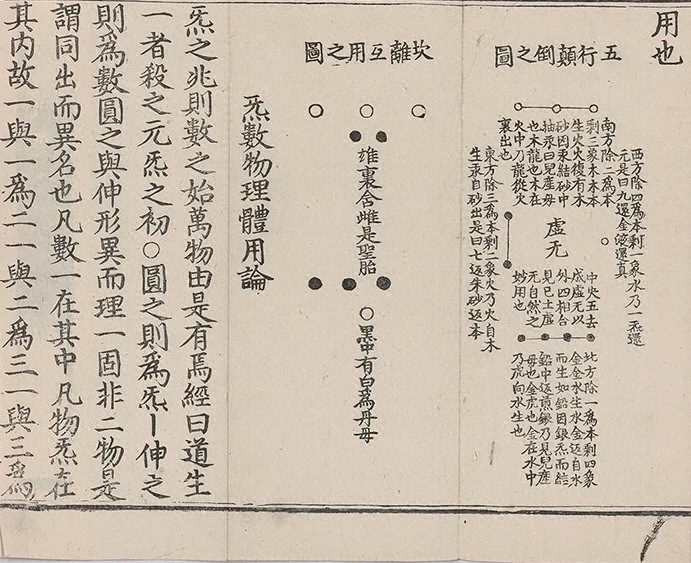 用也
五行顛倒之圖
西方除四爲本剩一象水乃一炁還
元是曰九還金液還真
南方除二爲本
剩三象木木本
生火火復有木
砂因汞結砂中
抽汞曰見產母
也木龍也木在
火中乃龍從火
裏出也
虛无
中央五去
成虛无以
外四相合
見己土虛
无自然之
妙用也
北方除一爲本剩四象
金金水生水金返自水
而生如鉛因銀炁而結
鉛中返煎銀乃見兒產
母也金虎也金在水中
乃虎向水生也
東方除三爲本剩二象火乃火自木
生汞自砂出是曰七返朱砂返本
坎離互用之圖
雄裏含雌是聖胎
黑中有白爲丹母
炁數物理體用論
炁之兆則數之始萬物由是有焉經曰道生
一者殺之元炁之初○圓之則爲炁丨伸之
則爲數圓之與伸形異而理一固非二物是
謂同出而異名也凡數一在其中凡物炁在
其内故一與一爲二一與二爲三一與三爲